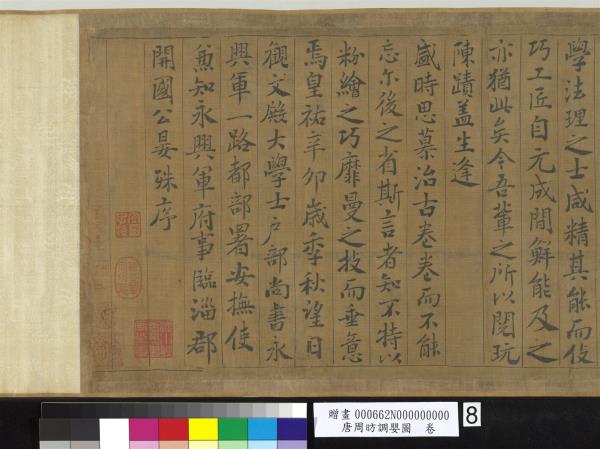 學法理之士咸精其能而伎
巧工匠自元成間鮮能及之
亦猶此矣今吾輩之所以閱玩
陳蹟蓋生逢
盛時思慕治古卷卷而不能
忘尔後之省斯言者知不特以
粉繪之巧靡曼之技而垂意
焉皇祐辛卯歲季秋望日
觀文殿大學士戶部尚書永
興軍一路都部署安撫使
兼知永興軍府事臨淄郡
開國公晏殊序
贈畫 000662N000000000
唐周昉調嬰圖 卷
8